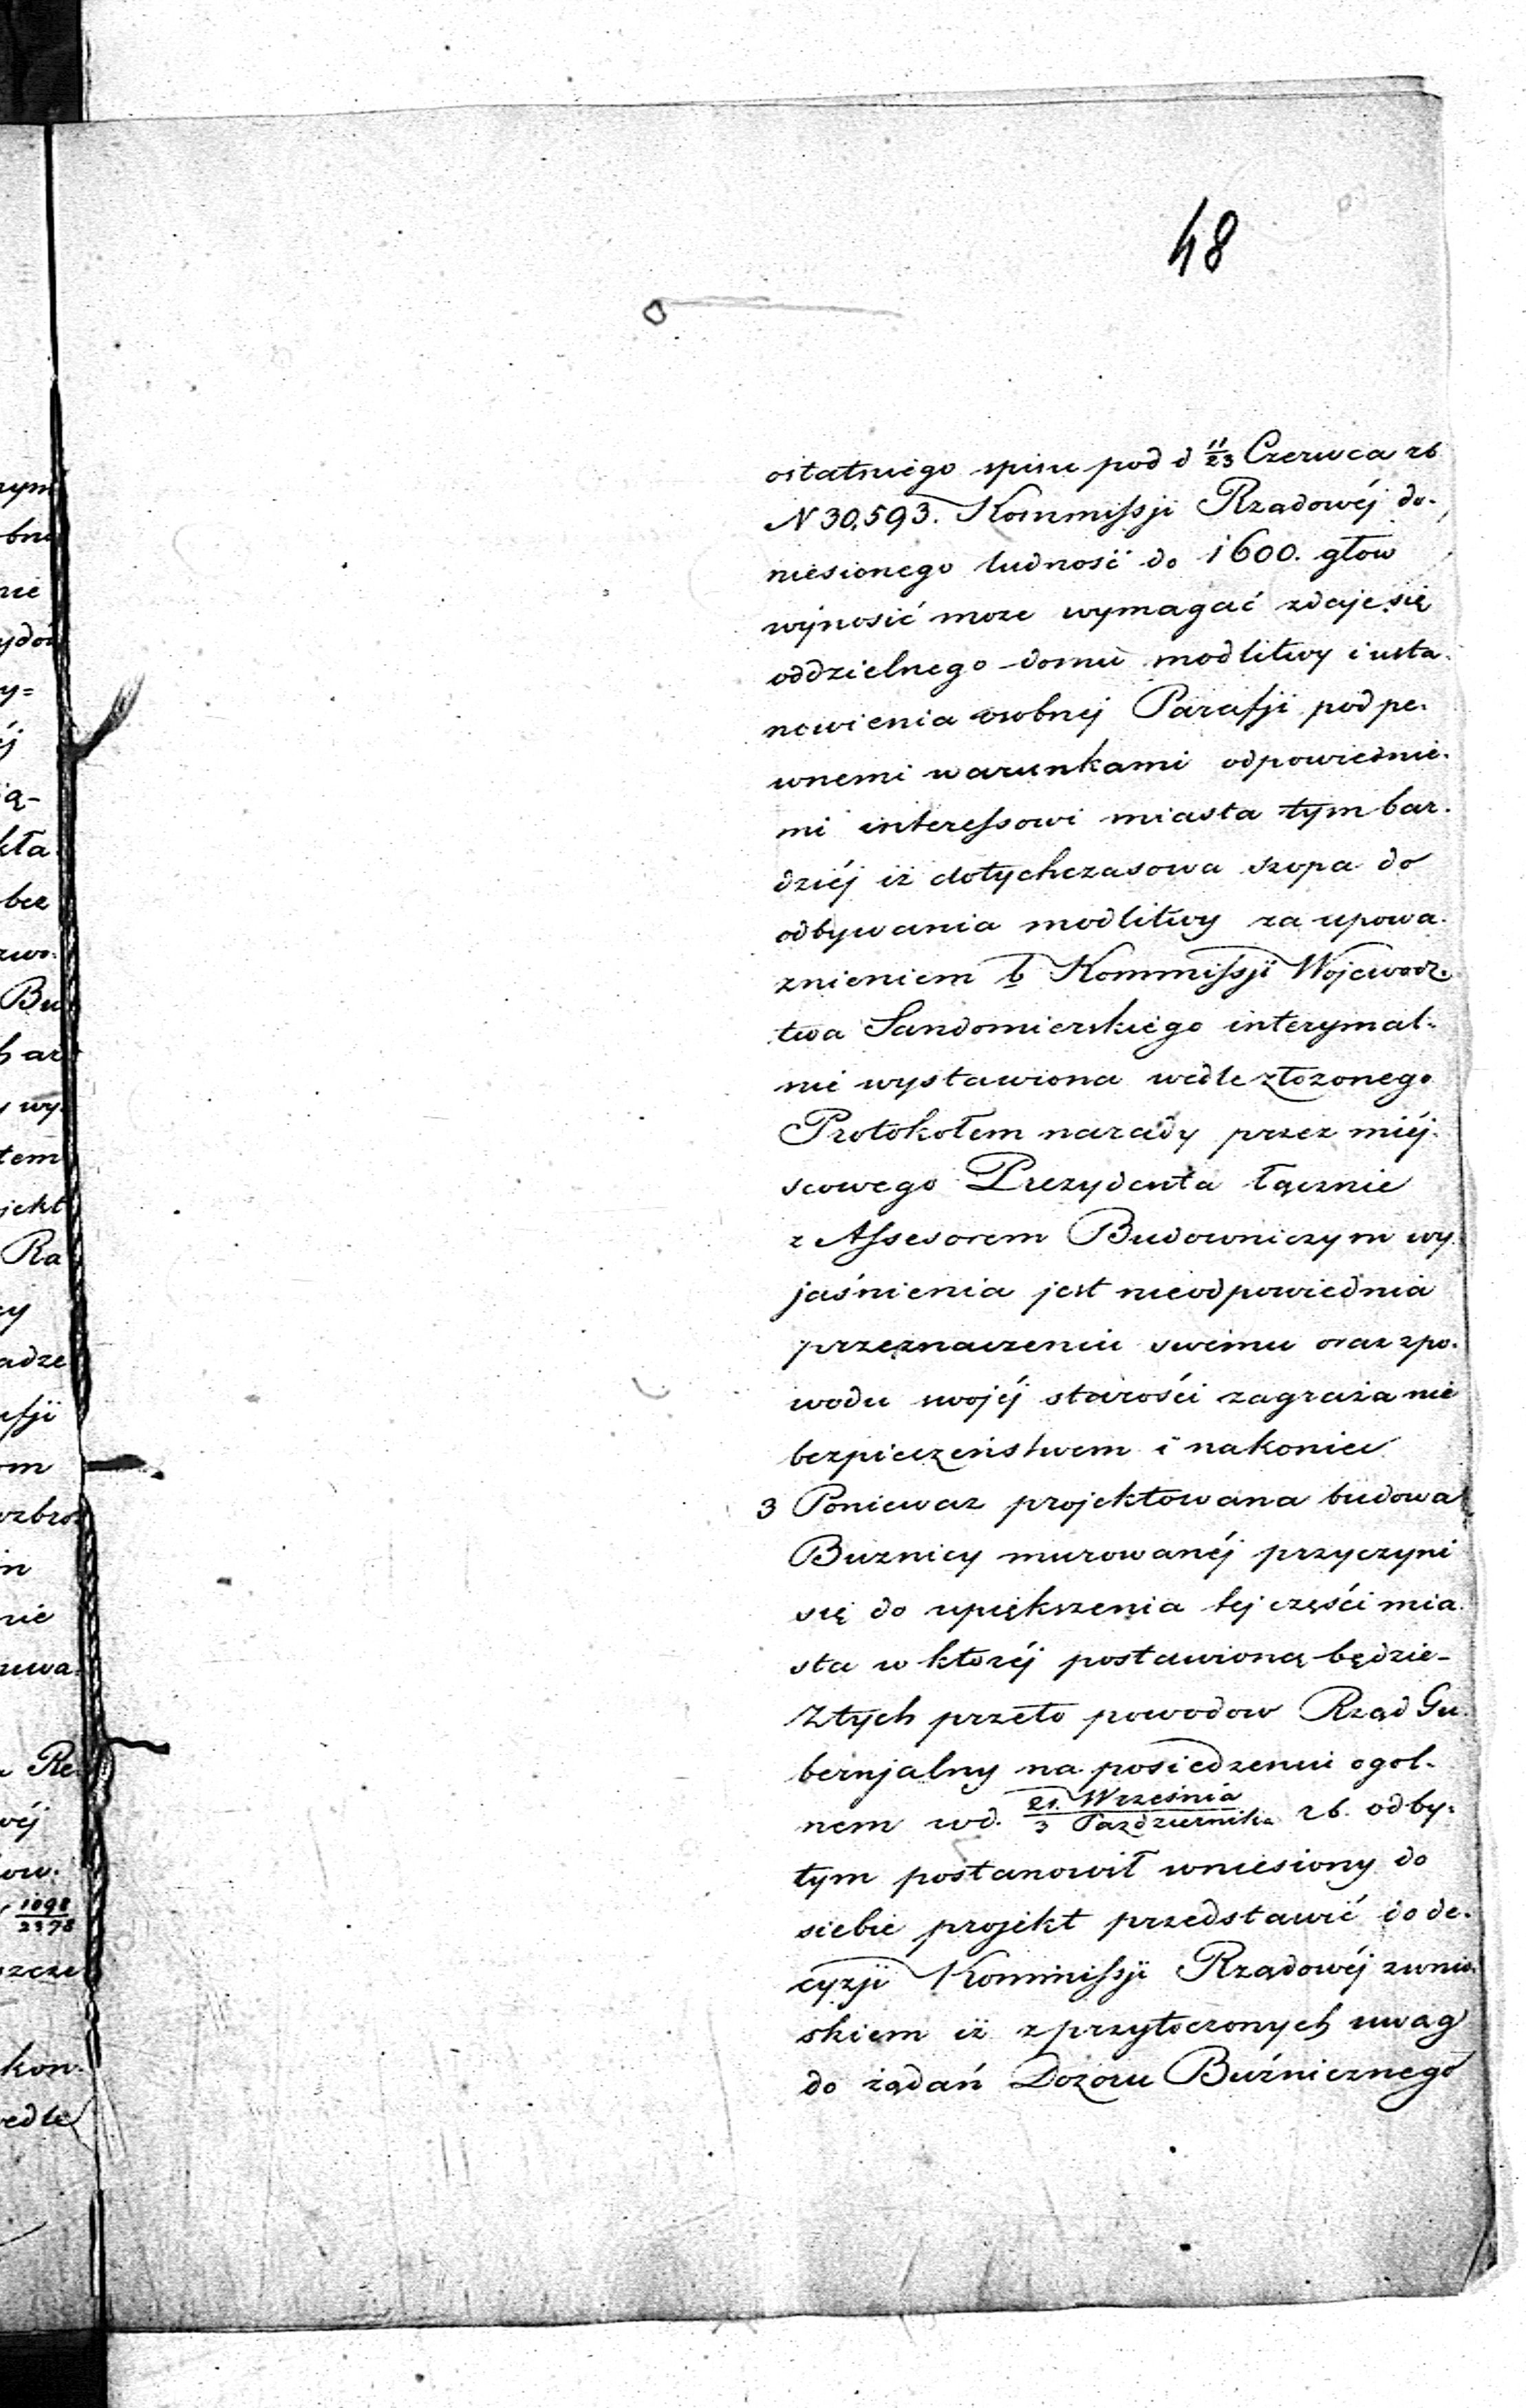 48
ostatniego spisu pod d 11/23 Czerwca rb
N 30,593. Kommissji Rządowéj do-
niesionego ludność do 1600. głow
wynosić może wymagać zdaje się
oddzielnego domu modlitwy i usta-
nowienia osobnej Parafji pod pe-
wnemi warunkami odpowiednie-
mi interessowi miasta tym bar-
dziéj iż dotychczasowa szopa do
odbywania modlitwy za upowa-
żnieniem b Kommissji Wojewodz-
twa Sandomierskiego interymal-
nie wystawiona wedle złożonego
Protokołem narady przez miéj-
scowego Prezydenta łącznie
z Assesorem Budowniczym wy-
jaśnienia jest nieodpowiednia
przeznaczeniu swemu oraz z po-
wodu swojéj starości zagraża nie
bezpieczeństwem i nakoniec
3 Ponieważ projektowana budowa
Buznicy murowanéj przyczyni
się do upiększenia tej części mia-
sta w któréj postawioną będzie-
Z tych przeto powodow Rząd Gu-
bernjalny na posiedzeniu ogol-
nem w d. 21. Września / 3 Października rb. odby-
tym postanowił wniesiony do
siebie projekt przedstawić do de-
cyzji Kommissji Rządowéj z wnio-
skiem iż z przytoczonych uwag
do żądań Dozoru Buźnicznego
rym
bne
nie
ydow
y=
éj
ią-
kła
bez
zwo-
Bu
ar
wy
tem
jekt
Ra
cy
adze
afji
om
wzbro
in
nie
uwa-
Re
wéj
ow.
1098/2378
szcze
kon-
wedle